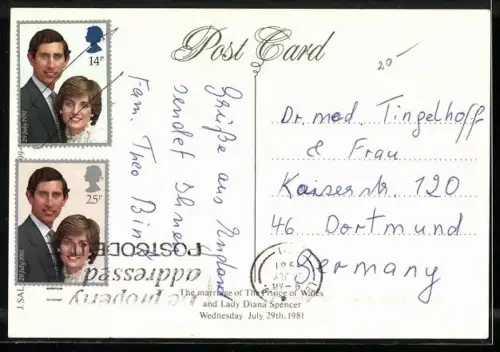 Post Card
14P
29 July 1981
25P
29 July 1981
20-
Grüße aus England
sendet Ihnen
Fam. Theo
Dr. med. Tingelhoff
& Frau
Kaiserstr. 120
46 Dortmund
Germany
The marriage of The Prince of Wales
and Lady Diana Spencer
Wednesday July 29th, 1981
properly
addressed
POSTCODE
J.SAL